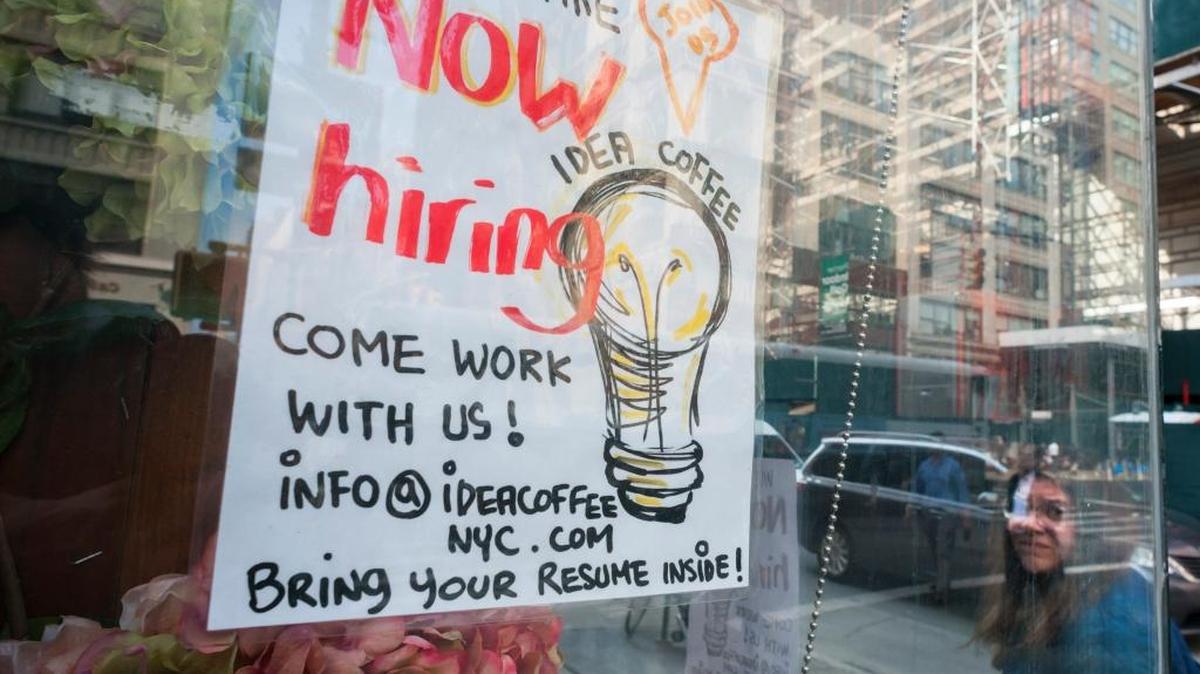 Now
Join
us
hiring
IDEA COFFEE
COME WORK
WITH US!
INFO@IDEACOFFEE
NYC.COM
BRING YOUR RESUME INSIDE!